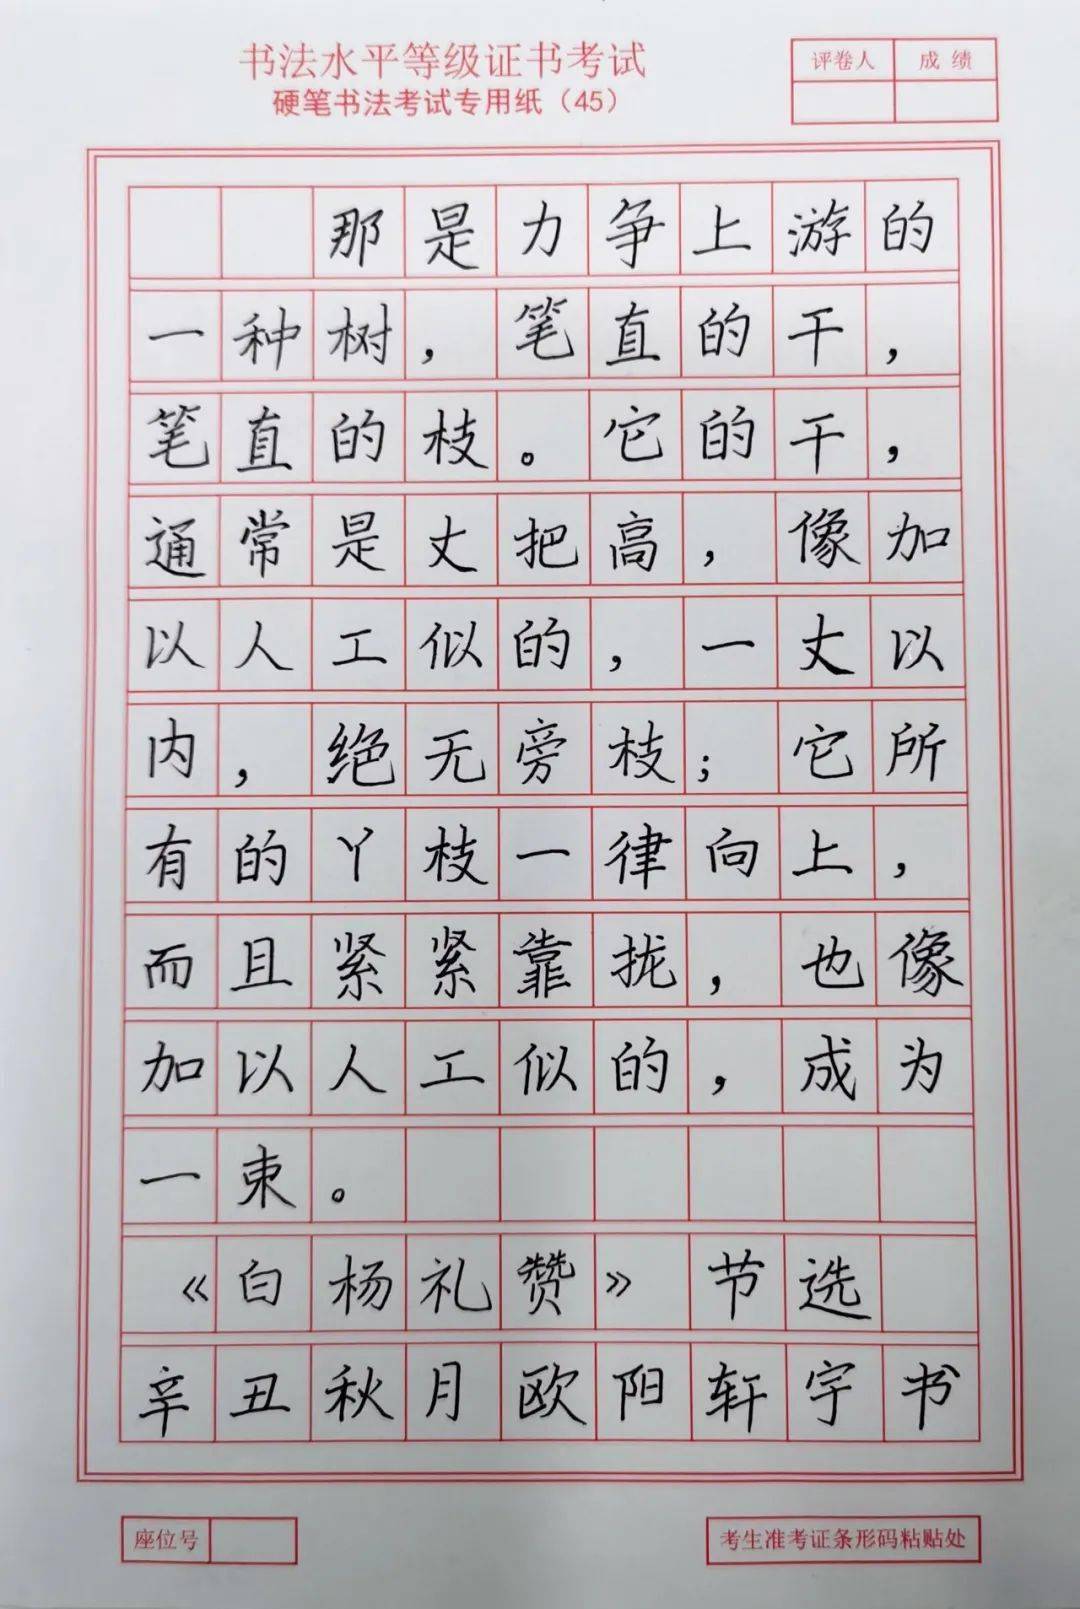 书法水平等级证书考试
硬笔书法考试专用纸（45）
评卷人 成绩
那是力争上游的
一种树，笔直的干，
笔直的枝。它的干，
通常是丈把高，像加
以人工似的，一丈以
内，绝无旁枝；它所
有的丫枝一律向上，
而且紧紧靠拢，也像
加以人工似的，成为
一束。
《白杨礼赞》节选
辛丑秋月欧阳轩宇书
座位号
考生准考证条形码粘贴处